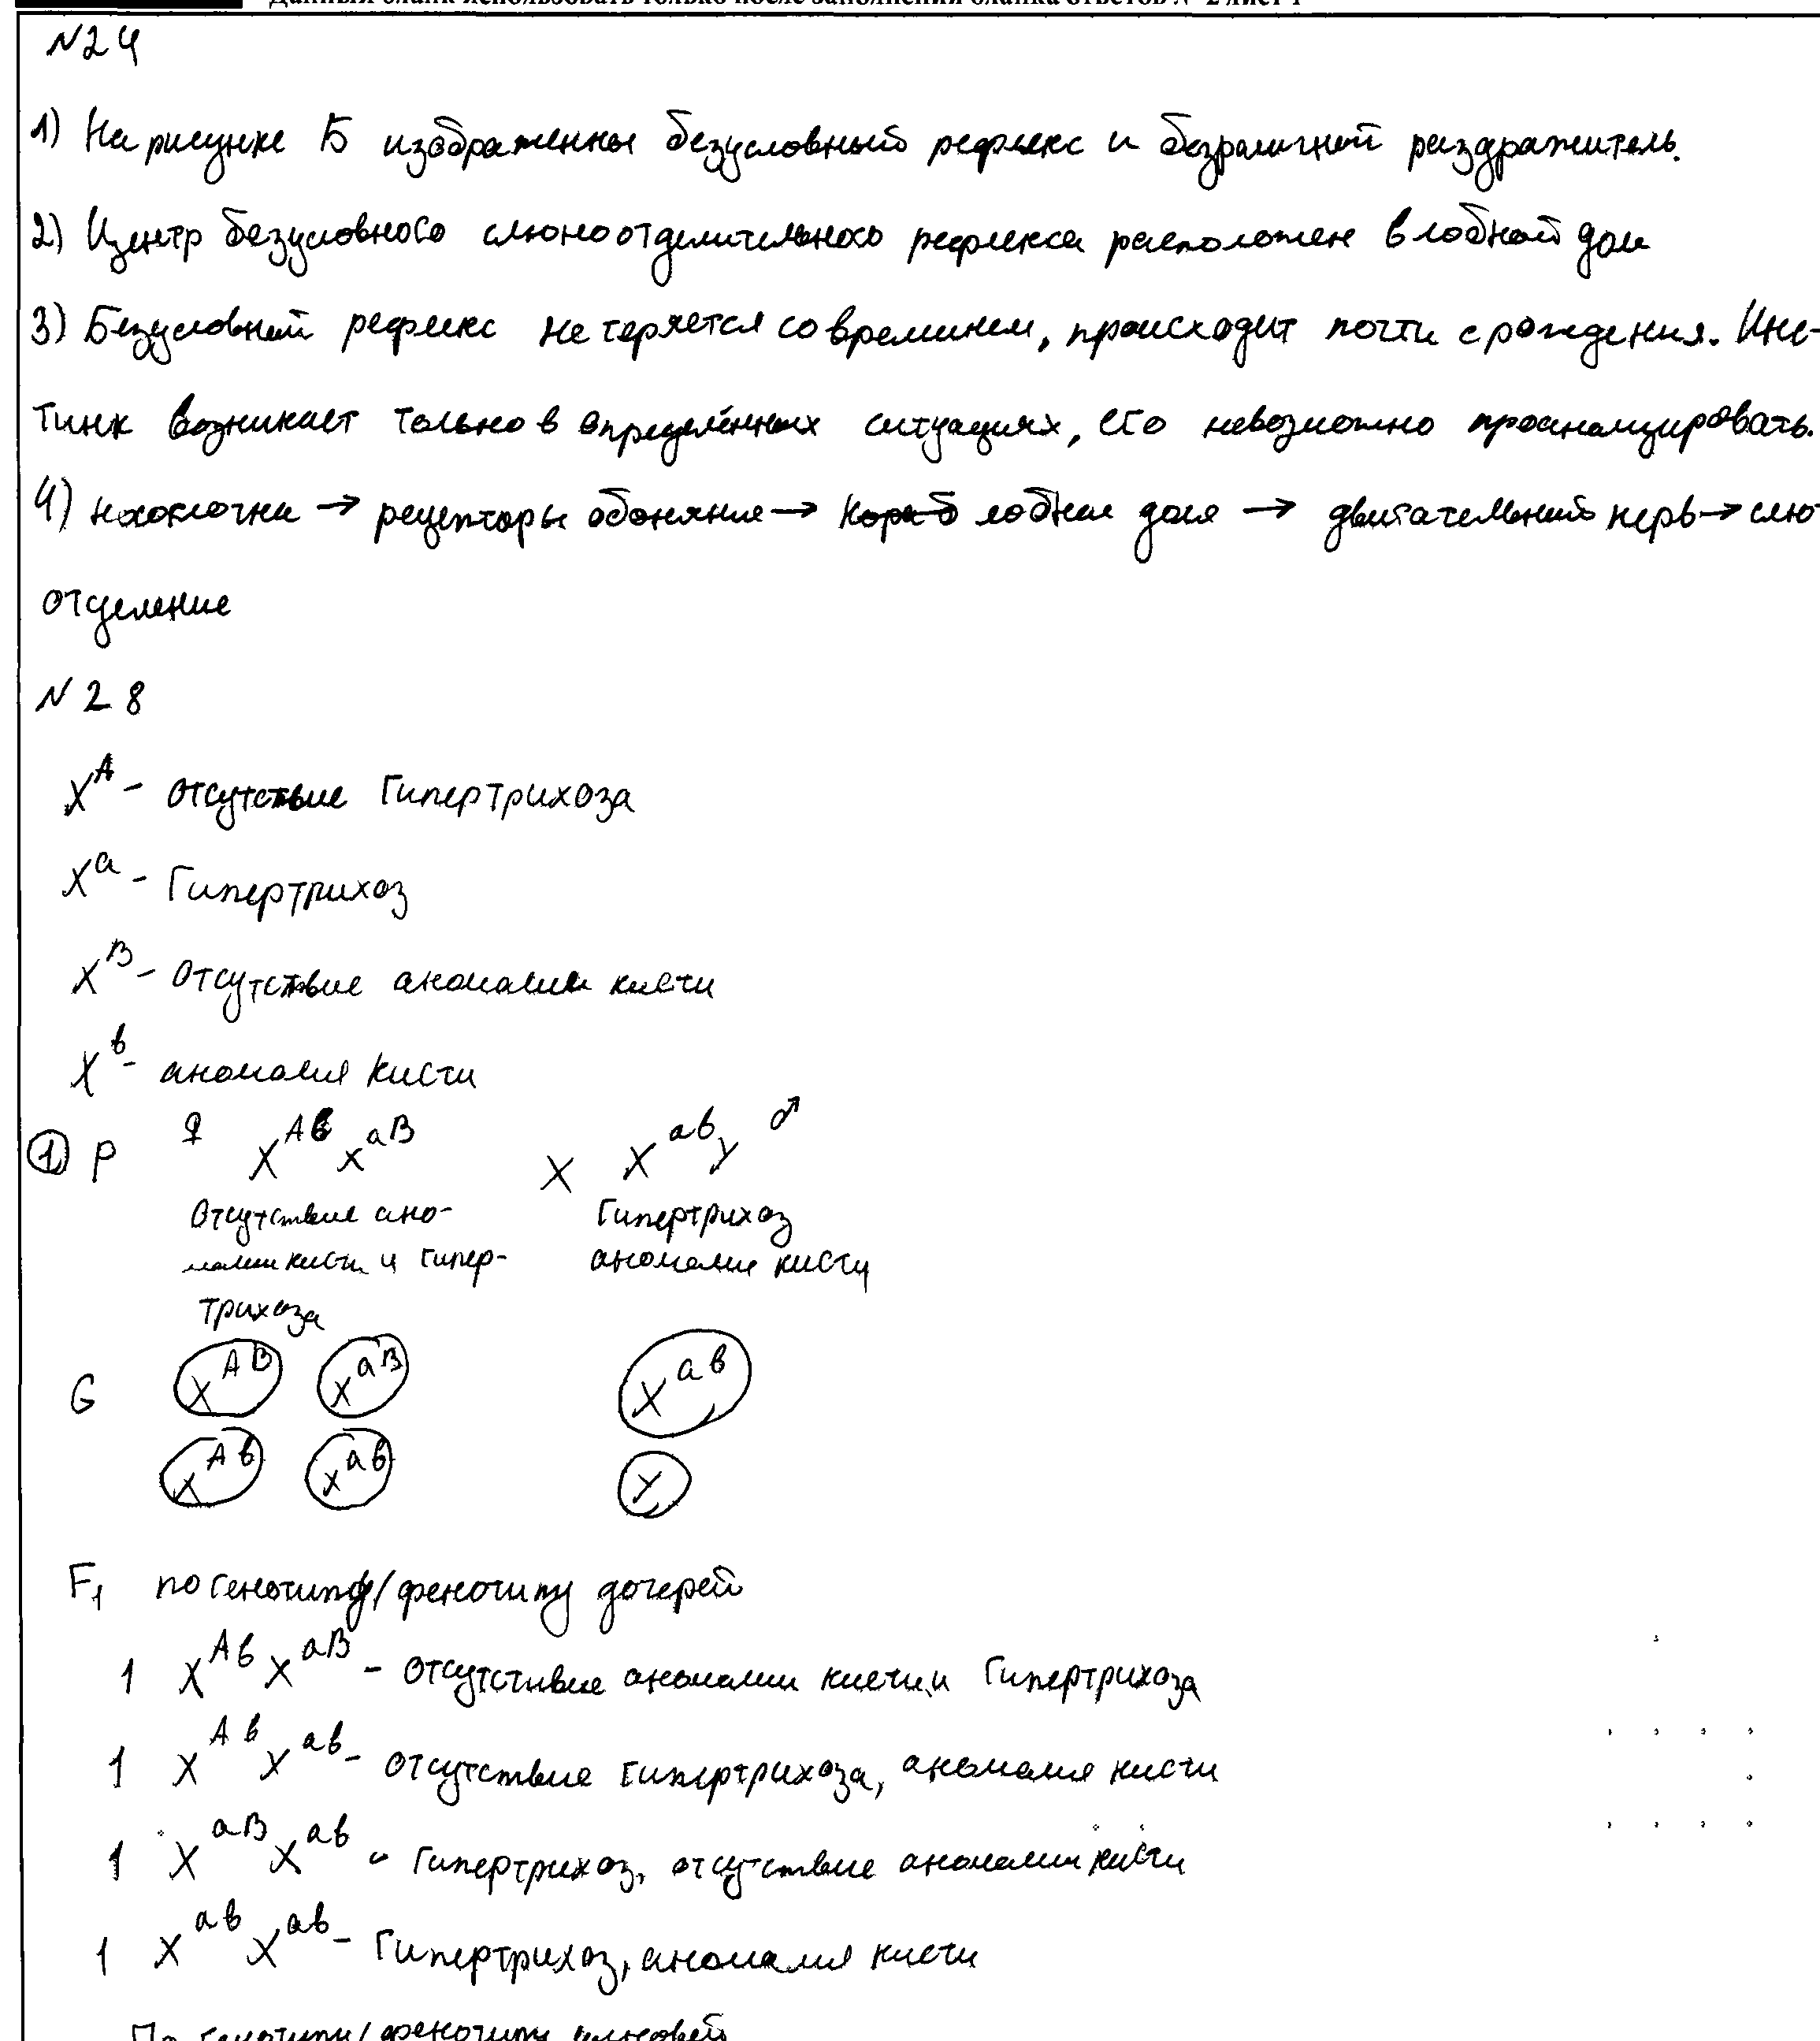 Данный бланк использовать только после заполнения бланка ответов № 2 лист 1
N24
1) На рисунке Б изображенны безусловный рефлекс и безразличной раздражитель.
2) Центр безусловного слюноотделительного рефлекса расположен в лобной доли
3) Безусловный рефлекс не теряется со временем, происходит почти с рождения. Инс-
тинк возникает только в определённых ситуациях, его невозможно проанализировать.
4) → рецепторы обоняния → лобная доля → двигательный нерв → слю-
отделение
N 28
X^A - Отсутствие Гипертрихоза
X^a - Гипертрихоз
X^B - Отсутствие аномалии кисти
X^b - аномалия кисти
① P ♀ X^Ab X^aB X X^ab Y ♂
Отсутствие ано- Гипертрихоз
малии кисти и гипер- аномалия кисти
трихоза
G X^AB X^aB X^ab
X^Ab X^ab Y
F1 по генотипу/фенотипу дочерей
1 X^Ab X^aB - Отсутствие аномалии кисти и Гипертрихоза
1 X^Ab X^ab - Отсутствие гипертрихоза, аномалия кисти
1 X^aB X^ab - Гипертрихоз, отсутствие аномалии кисти
1 X^ab X^ab - Гипертрихоз, аномалия кисти
По генотипу/фенотипу сыновей